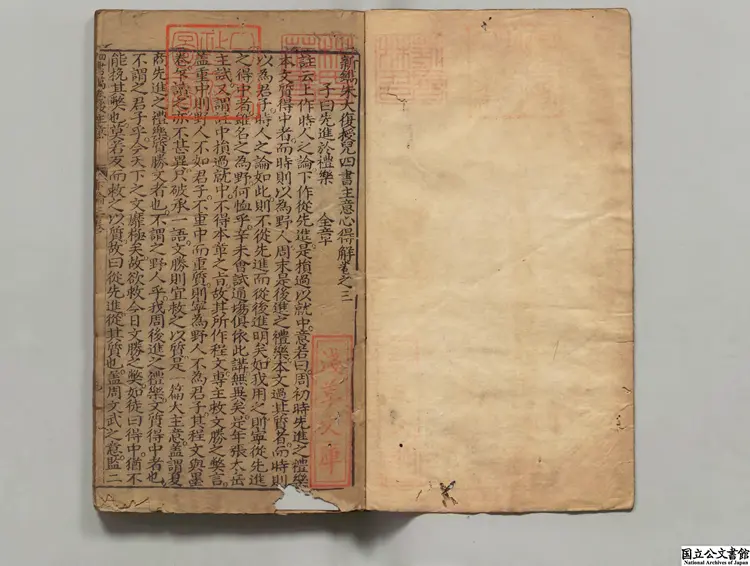 新鐫朱大復授兒四書主意心得解卷之三
子曰先進於禮樂 全章
註云上作時人之論下作從先進是損過以就中意若曰周初時先進之禮樂
本文質得中者而時則以為野人周末是後進之禮樂本文過其質者而時則
以為君子時人之論如此則不從先進而從後進明矣如我用之則寧從先進
之得中者雖名之為野何恤乎辛未會試通場俱依此講無異矣是年張太岳
主試又謂註中損過就中不得本章之旨故其所作程文專主救文勝之弊言
蓋重中則野人不如君子不重中而重質則寧為野人不為君子其程文與墨
卷讀之亦不甚異只破承一語文勝則宜救之以質是一篇大主意蓋謂夏
商先進之禮樂質勝文者也不謂之野人乎我周後進之禮樂文質得中者也
不謂之君子乎今天下之文靡極矣故欲救今日文勝之弊如徒曰得中猶不
能挽其弊也莫若反而救之以質故曰從先進從其質也蓋周文武之意監二
淺草文庫
国立公文書館
National Archives of Japan